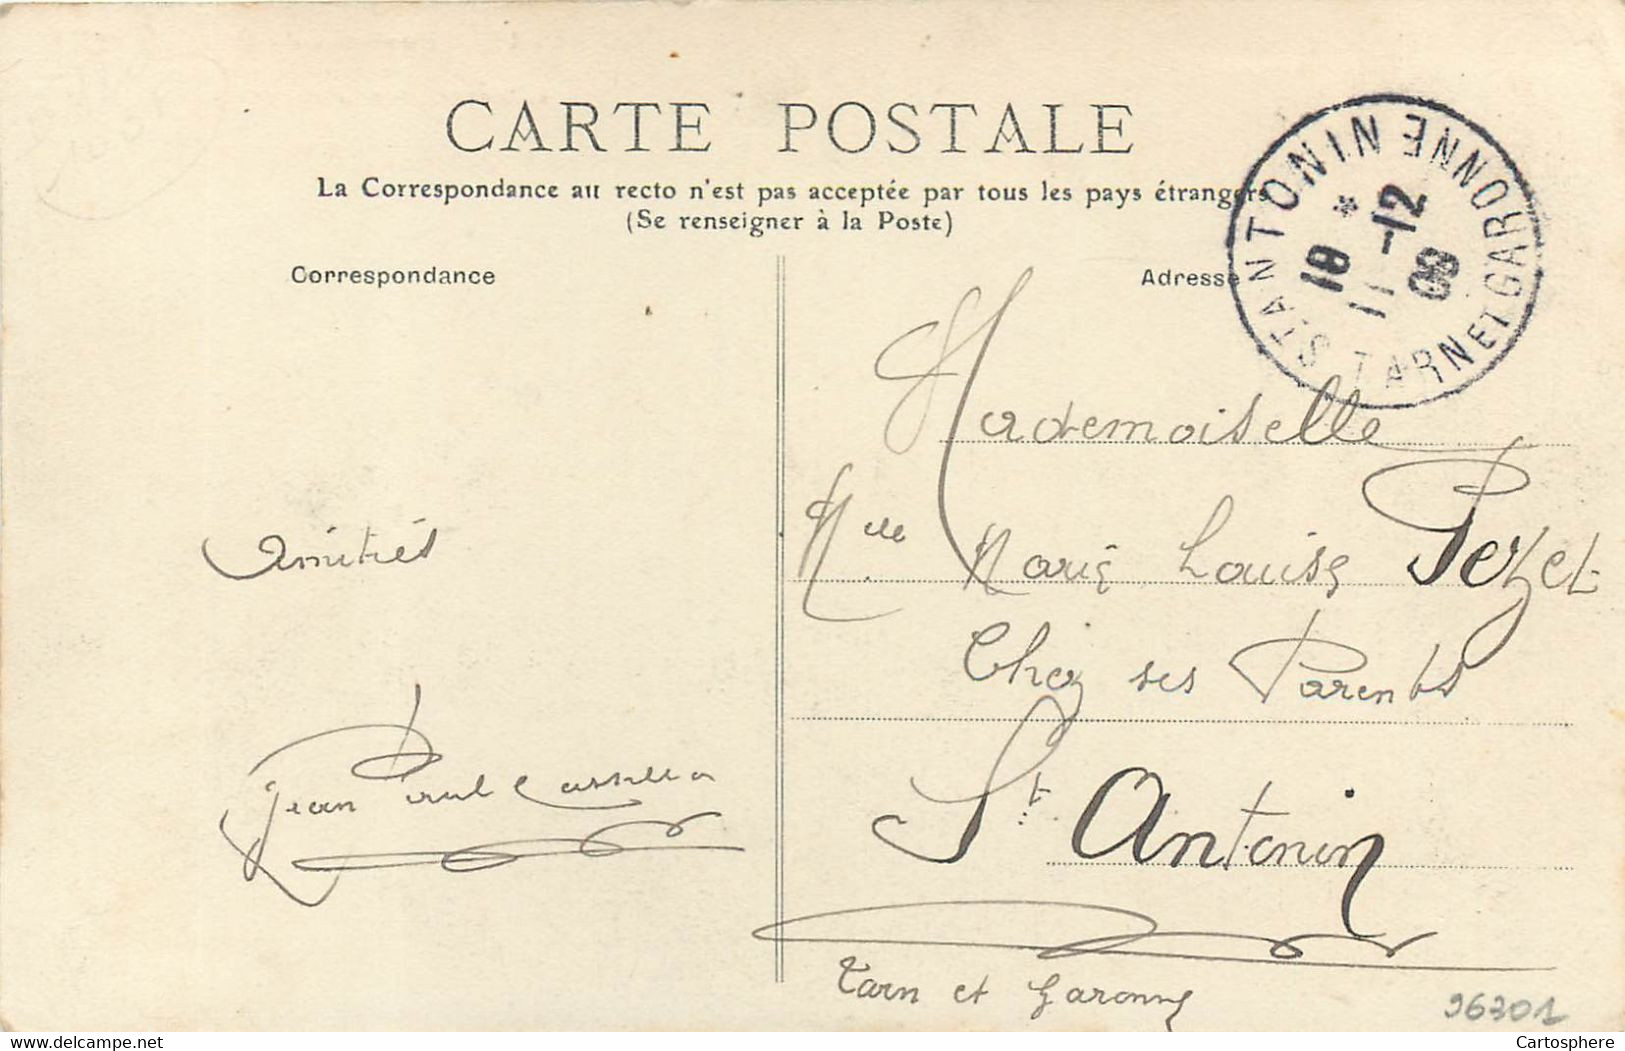 CARTE POSTALE
La Correspondance au recto n'est pas acceptée par tous les pays étrangers
(Se renseigner à la Poste)
Correspondance
Adresse
ST ANTONIN TARN ET GARONNE
18
11-12
08
Mademoiselle
Melle Marie Louise Pezet
Chez ses Parents
St Antonin
Tarn et Garonne
Amitiés
Jean Paul
96301
www.delcampe.net
Cartosphere